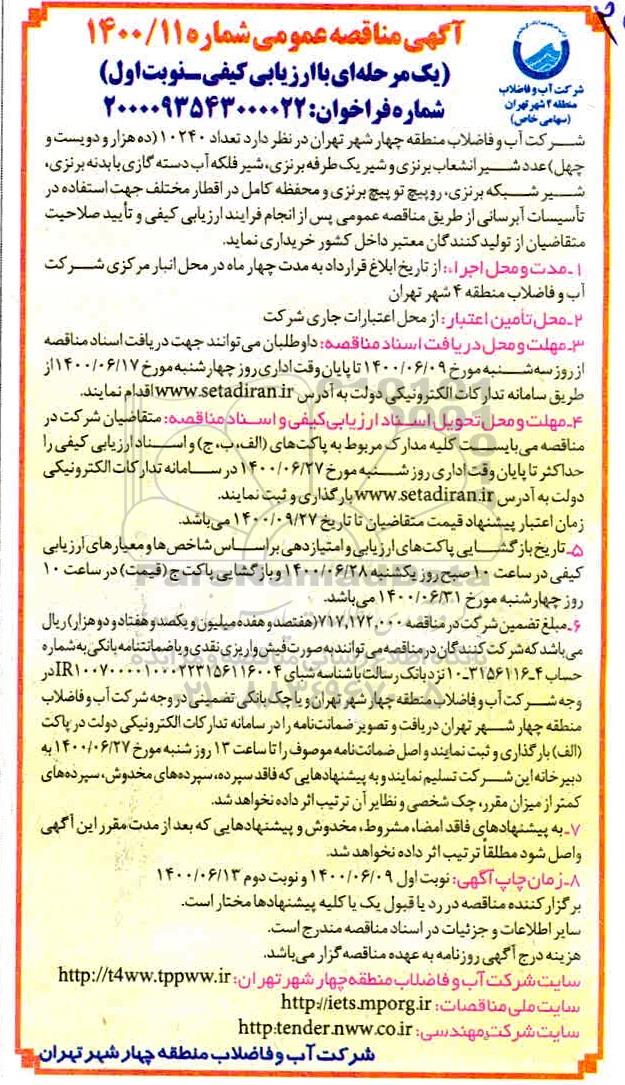 آگهی مناقصه عمومی شماره ۱۴۰۰/۱۱
(یک مرحله‌ای با ارزیابی کیفی ـ نوبت اول)
شماره فراخوان: ۲۰۰۰۰۹۳۵۴۳۰۰۰۰۲۲
شرکت آب و فاضلاب
منطقه ۴ شهر تهران
(سهامی خاص)
شرکت آب و فاضلاب منطقه چهار شهر تهران در نظر دارد تعداد ۱۰۲۴۰ (ده هزار و دویست و
چهل) عدد شیر انشعاب برنزی و شیر یک طرفه برنزی، شیر فلکه آب دسته گازی با بدنه برنزی،
شیر شبکه برنزی، روپیچ تو پیچ برنزی و محفظه کامل در اقطار مختلف جهت استفاده در
تأسیسات آبرسانی از طریق مناقصه عمومی پس از انجام فرایند ارزیابی کیفی و تأیید صلاحیت
متقاضیان از تولیدکنندگان معتبر داخل کشور خریداری نماید.
۱ـ مدت و محل اجراء: از تاریخ ابلاغ قرارداد به مدت چهار ماه در محل انبار مرکزی شرکت
آب و فاضلاب منطقه ۴ شهر تهران
۲ـ محل تأمین اعتبار: از محل اعتبارات جاری شرکت
۳ـ مهلت و محل دریافت اسناد مناقصه: داوطلبان می‌توانند جهت دریافت اسناد مناقصه
از روز سه‌شنبه مورخ ۱۴۰۰/۰۶/۰۹ تا پایان وقت اداری روز چهارشنبه مورخ ۱۴۰۰/۰۶/۱۷ از
طریق سامانه تدارکات الکترونیکی دولت به آدرس www.setadiran.ir اقدام نمایند.
۴ـ مهلت و محل تحویل اسناد ارزیابی کیفی و اسناد مناقصه: متقاضیان شرکت در
مناقصه می‌بایست کلیه مدارک مربوط به پاکت‌های (الف، ب، ج) و اسناد ارزیابی کیفی را
حداکثر تا پایان وقت اداری روز شنبه مورخ ۱۴۰۰/۰۶/۲۷ در سامانه تدارکات الکترونیکی
دولت به آدرس www.setadiran.ir بارگذاری و ثبت نمایند.
زمان اعتبار پیشنهاد قیمت متقاضیان تا تاریخ ۱۴۰۰/۰۹/۲۷ می‌باشد.
۵ـ تاریخ بازگشایی پاکت‌های ارزیابی و امتیازدهی براساس شاخص‌ها و معیارهای ارزیابی
کیفی در ساعت ۱۰ صبح روز یکشنبه ۱۴۰۰/۰۶/۲۸ و بازگشایی پاکت ج (قیمت) در ساعت ۱۰
روز چهارشنبه مورخ ۱۴۰۰/۰۶/۳۱ می‌باشد.
۶ـ مبلغ تضمین شرکت در مناقصه ۷۱۷,۱۷۲,۰۰۰ (هفتصد و هفده میلیون و یکصد و هفتاد و دو هزار) ریال
می‌باشد که شرکت کنندگان در مناقصه می‌توانند به صورت فیش واریزی نقدی و یا ضمانتنامه بانکی به شماره
حساب ۴ـ۳۱۵۶۱۱۶ـ۱۰ نزد بانک رسالت با شناسه شبای IR۱۰۰۷۰۰۰۰۱۰۰۰۲۲۳۱۵۶۱۱۶۰۰۴ در
وجه شرکت آب و فاضلاب منطقه چهار شهر تهران و یا چک بانکی تضمینی در وجه شرکت آب و فاضلاب
منطقه چهار شهر تهران دریافت و تصویر ضمانت‌نامه را در سامانه تدارکات الکترونیکی دولت در پاکت
(الف) بارگذاری و ثبت نمایند و اصل ضمانت‌نامه موصوف را تا ساعت ۱۳ روز شنبه مورخ ۱۴۰۰/۰۶/۲۷ به
دبیرخانه این شرکت تسلیم نمایند و به پیشنهادهایی که فاقد سپرده، سپرده‌های مخدوش، سپرده‌های
کمتر از میزان مقرر، چک شخصی و نظایر آن ترتیب اثر داده نخواهد شد.
۷ـ به پیشنهادهای فاقد امضا، مشروط، مخدوش و پیشنهادهایی که بعد از مدت مقرر این آگهی
واصل شود مطلقاً ترتیب اثر داده نخواهد شد.
۸ـ زمان چاپ آگهی: نوبت اول ۱۴۰۰/۰۶/۰۹ و نوبت دوم ۱۴۰۰/۰۶/۱۳
برگزارکننده مناقصه در رد یا قبول یک یا کلیه پیشنهادها مختار است.
سایر اطلاعات و جزئیات در اسناد مناقصه مندرج است.
هزینه درج آگهی روزنامه به عهده مناقصه‌گزار می‌باشد.
سایت شرکت آب و فاضلاب منطقه چهار شهر تهران: http://t4ww.tppww.ir
سایت ملی مناقصات: http://iets.mporg.ir
سایت شرکت مهندسی: http:tender.nww.co.ir
شرکت آب و فاضلاب منطقه چهار شهر تهران